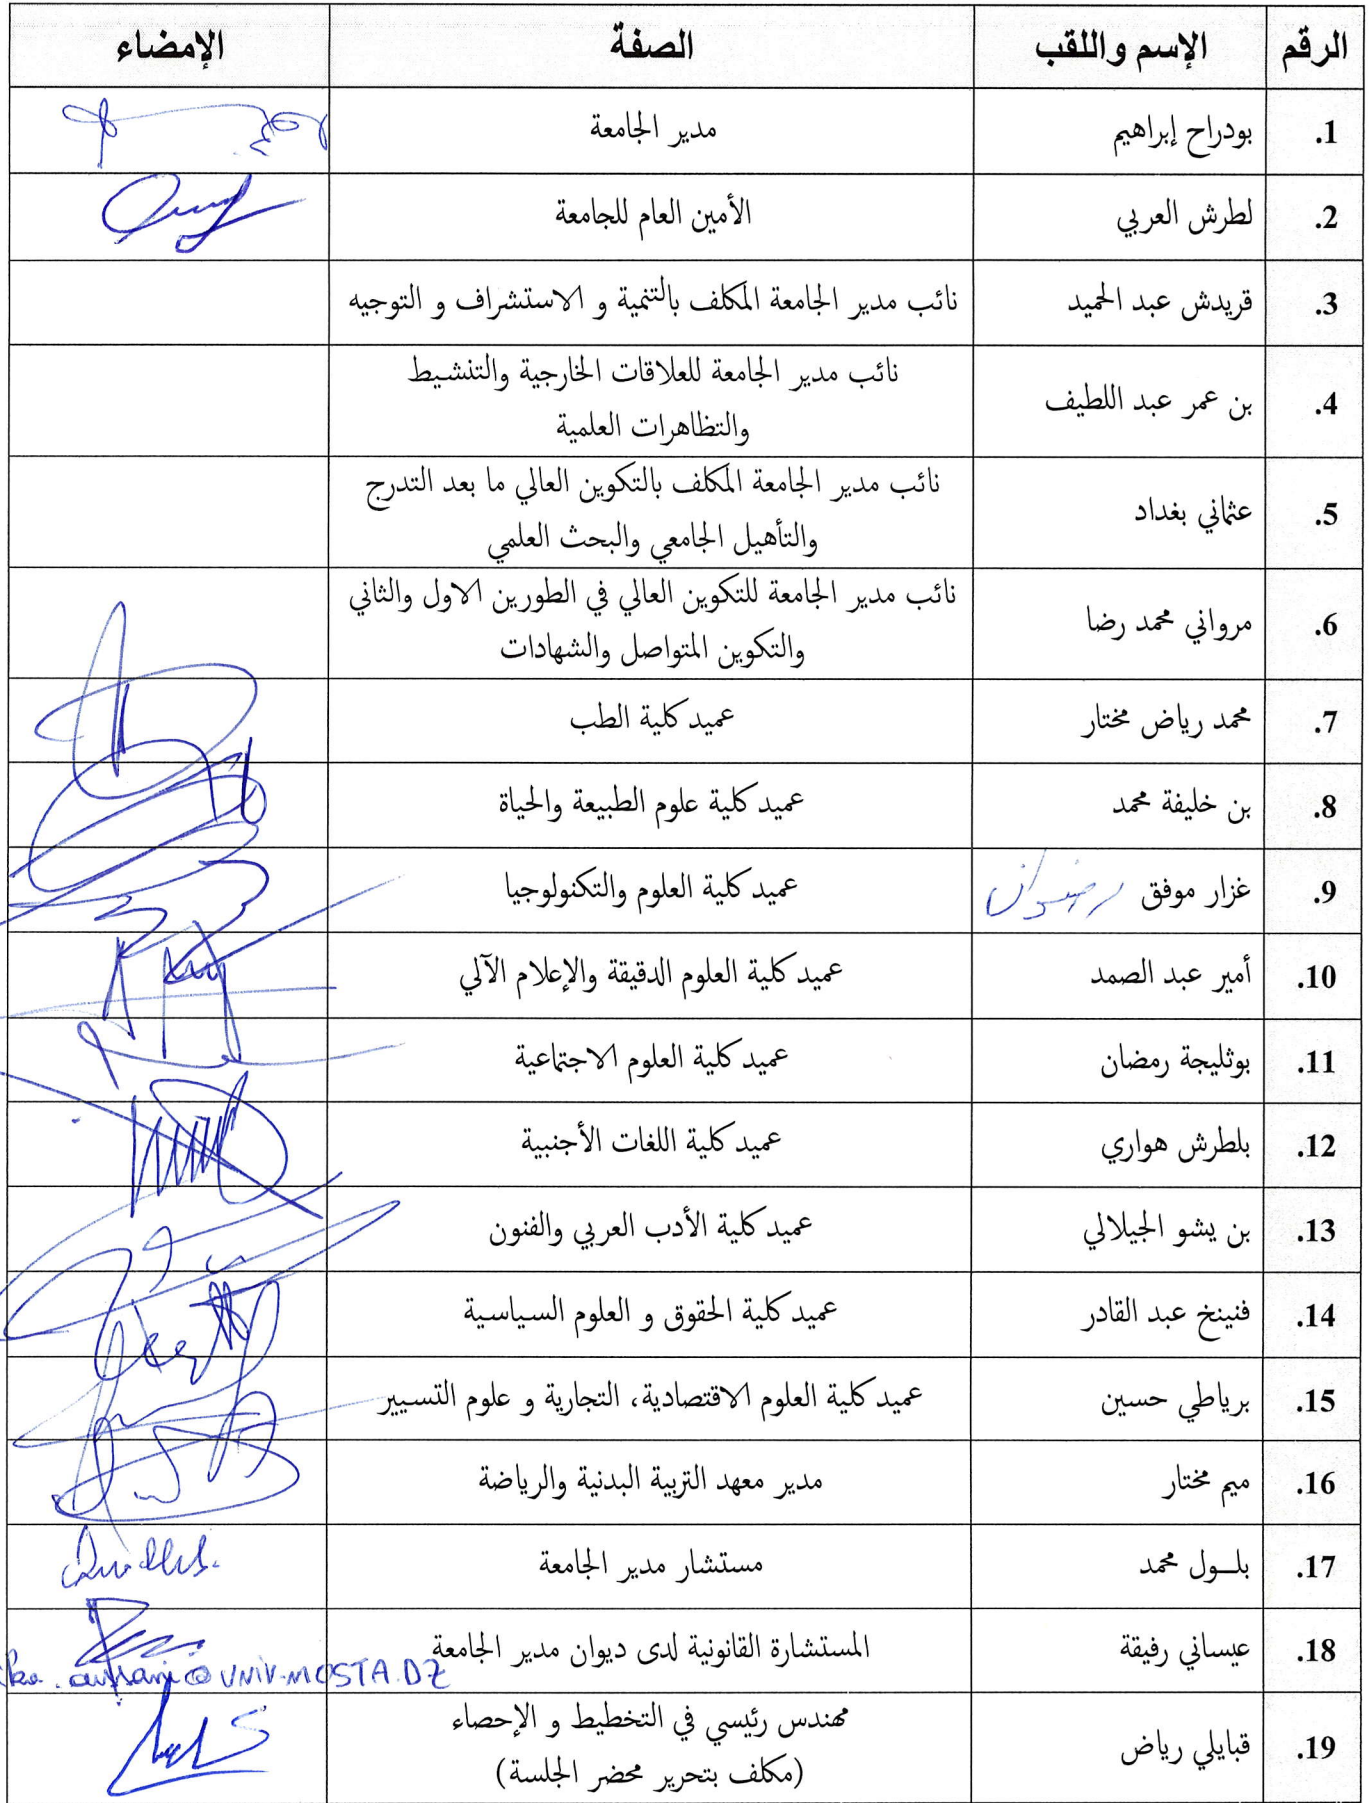 الرقم الإسم واللقب الصفة الإمضاء
1. بودراح إبراهيم مدير الجامعة
2. لطرش العربي الأمين العام للجامعة
3. قريدش عبد الحميد نائب مدير الجامعة المكلف بالتنمية و الاستشراف و التوجيه
4. بن عمر عبد اللطيف نائب مدير الجامعة للعلاقات الخارجية والتنشيط
والتظاهرات العلمية
5. عثماني بغداد نائب مدير الجامعة المكلف بالتكوين العالي ما بعد التدرج
والتأهيل الجامعي والبحث العلمي
6. مرواني محمد رضا نائب مدير الجامعة للتكوين العالي في الطورين الاول والثاني
والتكوين المتواصل والشهادات
7. محمد رياض مختار عميد كلية الطب
8. بن خليفة محمد عميد كلية علوم الطبيعة والحياة
9. غزار موفق رضوان عميد كلية العلوم والتكنولوجيا
10. أمير عبد الصمد عميد كلية العلوم الدقيقة والإعلام الآلي
11. بوثليجة رمضان عميد كلية العلوم الاجتماعية
12. بلطرش هواري عميد كلية اللغات الأجنبية
13. بن يشو الجيلالي عميد كلية الأدب العربي والفنون
14. فنينخ عبد القادر عميد كلية الحقوق و العلوم السياسية
15. برياطي حسين عميد كلية العلوم الاقتصادية، التجارية و علوم التسيير
16. ميم مختار مدير معهد التربية البدنية والرياضة
17. بلــول محمد مستشار مدير الجامعة
18. عيساني رفيقة المستشارة القانونية لدى ديوان مدير الجامعة
@ UNIV-MOSTA.DZ
19. قبايلي رياض مهندس رئيسي في التخطيط و الإحصاء
(مكلف بتحرير محضر الجلسة)